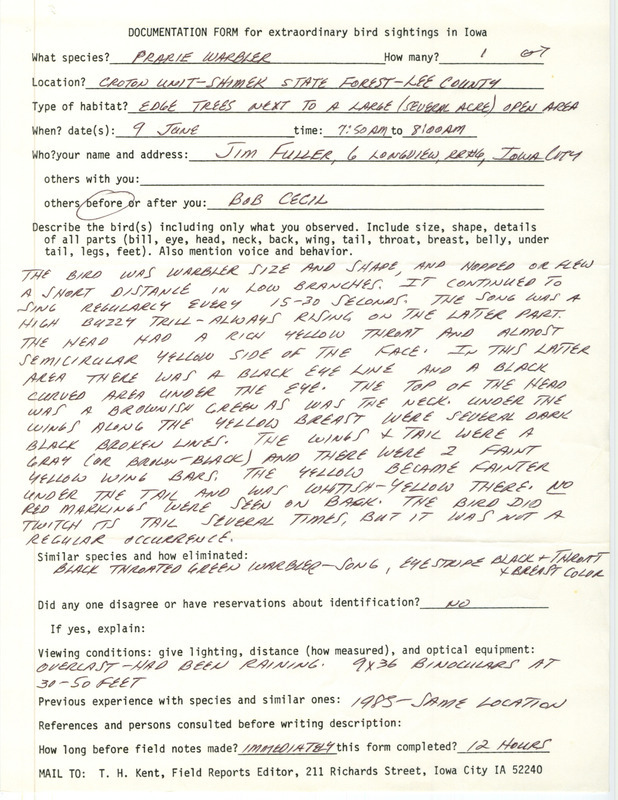 DOCUMENTATION FORM for extraordinary bird sightings in Iowa
What species? PRARIE WARBLER How many? 1
Location? CROTON UNIT-SHIMEK STATE FOREST-LEE COUNTY
Type of habitat? EDGE TREES NEXT TO A LARGE (SEVERAL ACRE) OPEN AREA
When? date(s): 9 JUNE time: 7:50AM to 8:00AM
Who?your name and address: JIM FULLER, 6 LONGVIEW, RR#6, IOWA CITY
others with you:
others before or after you: BOB CECIL
Describe the bird(s) including only what you observed. Include size, shape, details
of all parts (bill, eye, head, neck, back, wing, tail, throat, breast, belly, under
tail, legs, feet). Also mention voice and behavior.
THE BIRD WAS WARBLER SIZE AND SHAPE, AND HOPPED OR FLEW
A SHORT DISTANCE IN LOW BRANCHES. IT CONTINUED TO
SING REGULARLY EVERY 15-20 SECONDS. THE SONG WAS A
HIGH BUZZY TRILL-ALWAYS RISING ON THE LATTER PART.
THE HEAD HAD A RICH YELLOW THROAT AND ALMOST
SEMICIRCULAR YELLOW SIDE OF THE FACE. IN THIS LATTER
AREA THERE WAS A BLACK EYE LINE AND A BLACK
CURVED AREA UNDER THE EYE. THE TOP OF THE HEAD
WAS A BROWNISH GREEN AS WAS THE NECK. UNDER THE
WINGS ALONG THE YELLOW BREAST WERE SEVERAL DARK
BLACK BROKEN LINES. THE WINGS & TAIL WERE A
GRAY (OR BROWN-BLACK) AND THERE WERE 2 FAINT
YELLOW WING BARS. THE YELLOW BECAME FAINTER
UNDER THE TAIL AND WAS WHITISH-YELLOW THERE. NO
RED MARKINGS WERE SEEN ON BACK. THE BIRD DID
TWITCH ITS TAIL SEVERAL TIMES, BUT IT WAS NOT A
REGULAR OCCURRENCE.
Similar species and how eliminated:
BLACK THROATED GREEN WARBLER-SONG, EYESTRIPE BLACK + THROAT
+ BREAST COLOR
Did any one disagree or have reservations about identification? NO
If yes, explain:
Viewing conditions: give lighting, distance (how measured), and optical equipment:
OVERCAST-HAD BEEN RAINING. 9X36 BINOCULARS AT
30-50 FEET
Previous experience with species and similar ones: 1985-SAME LOCATION
References and persons consulted before writing description:
How long before field notes made? IMMEDIATELY this form completed? 12 HOURS
MAIL TO: T. H. Kent, Field Reports Editor, 211 Richards Street, Iowa City IA 52240